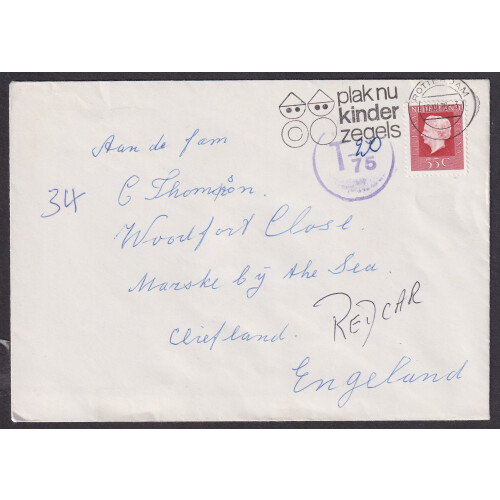 plak nu
kinder
zegels
ROTTERDAM
55 C
T 20
75
Aan de fam
34
C Thompson.
Woodfort Close.
Marske by the Sea.
Cliefland.
REDCAR
Engeland